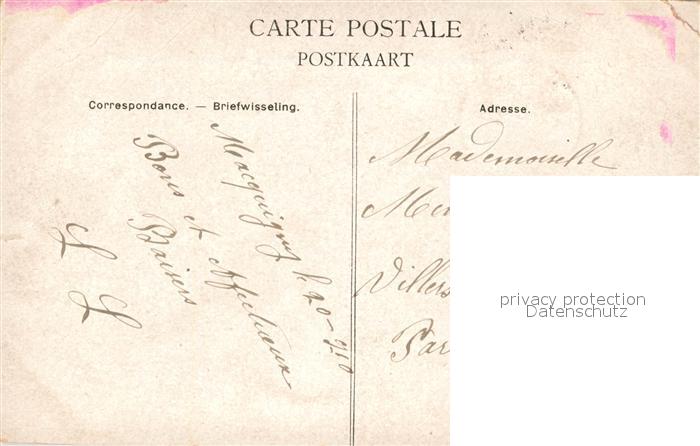 CARTE POSTALE
POSTKAART
Correspondance. — Briefwisseling.
Adresse.
Macquigny le 20-9-10
Bons et Affectueux
Baisers
L L
Mademoiselle
Villers
Par
privacy protection
Datenschutz